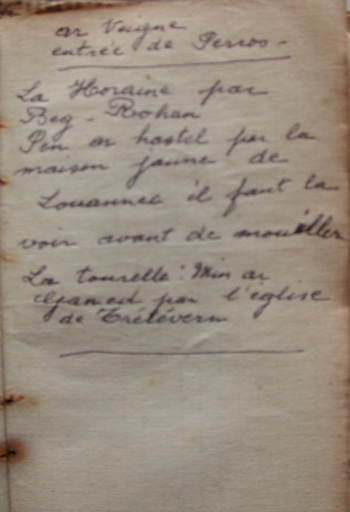 ar Veigne
entrée de Perros -
La Horaine par
Beg - Rohan
Pen ar hastel par la
maison jaune de
Louannec il faut la
voir avant de mouiller
La tourelle : Min ar
de Trélévern
par l'église